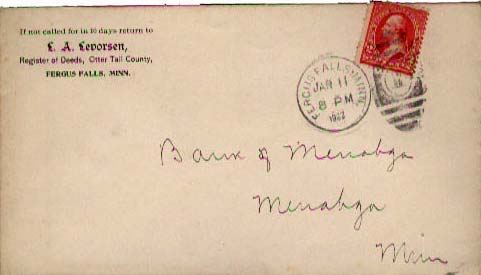 If not called for in 10 days return to
L. A. Levorsen,
Register of Deeds, Otter Tail County,
FERGUS FALLS, MINN.
FERGUS FALLS, MINN.
JAN 11
8 PM
1902
Bank of Menahga
Menahga
Minn